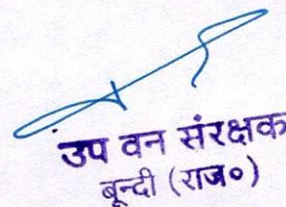 उप वन संरक्षक
बून्दी (राज०)